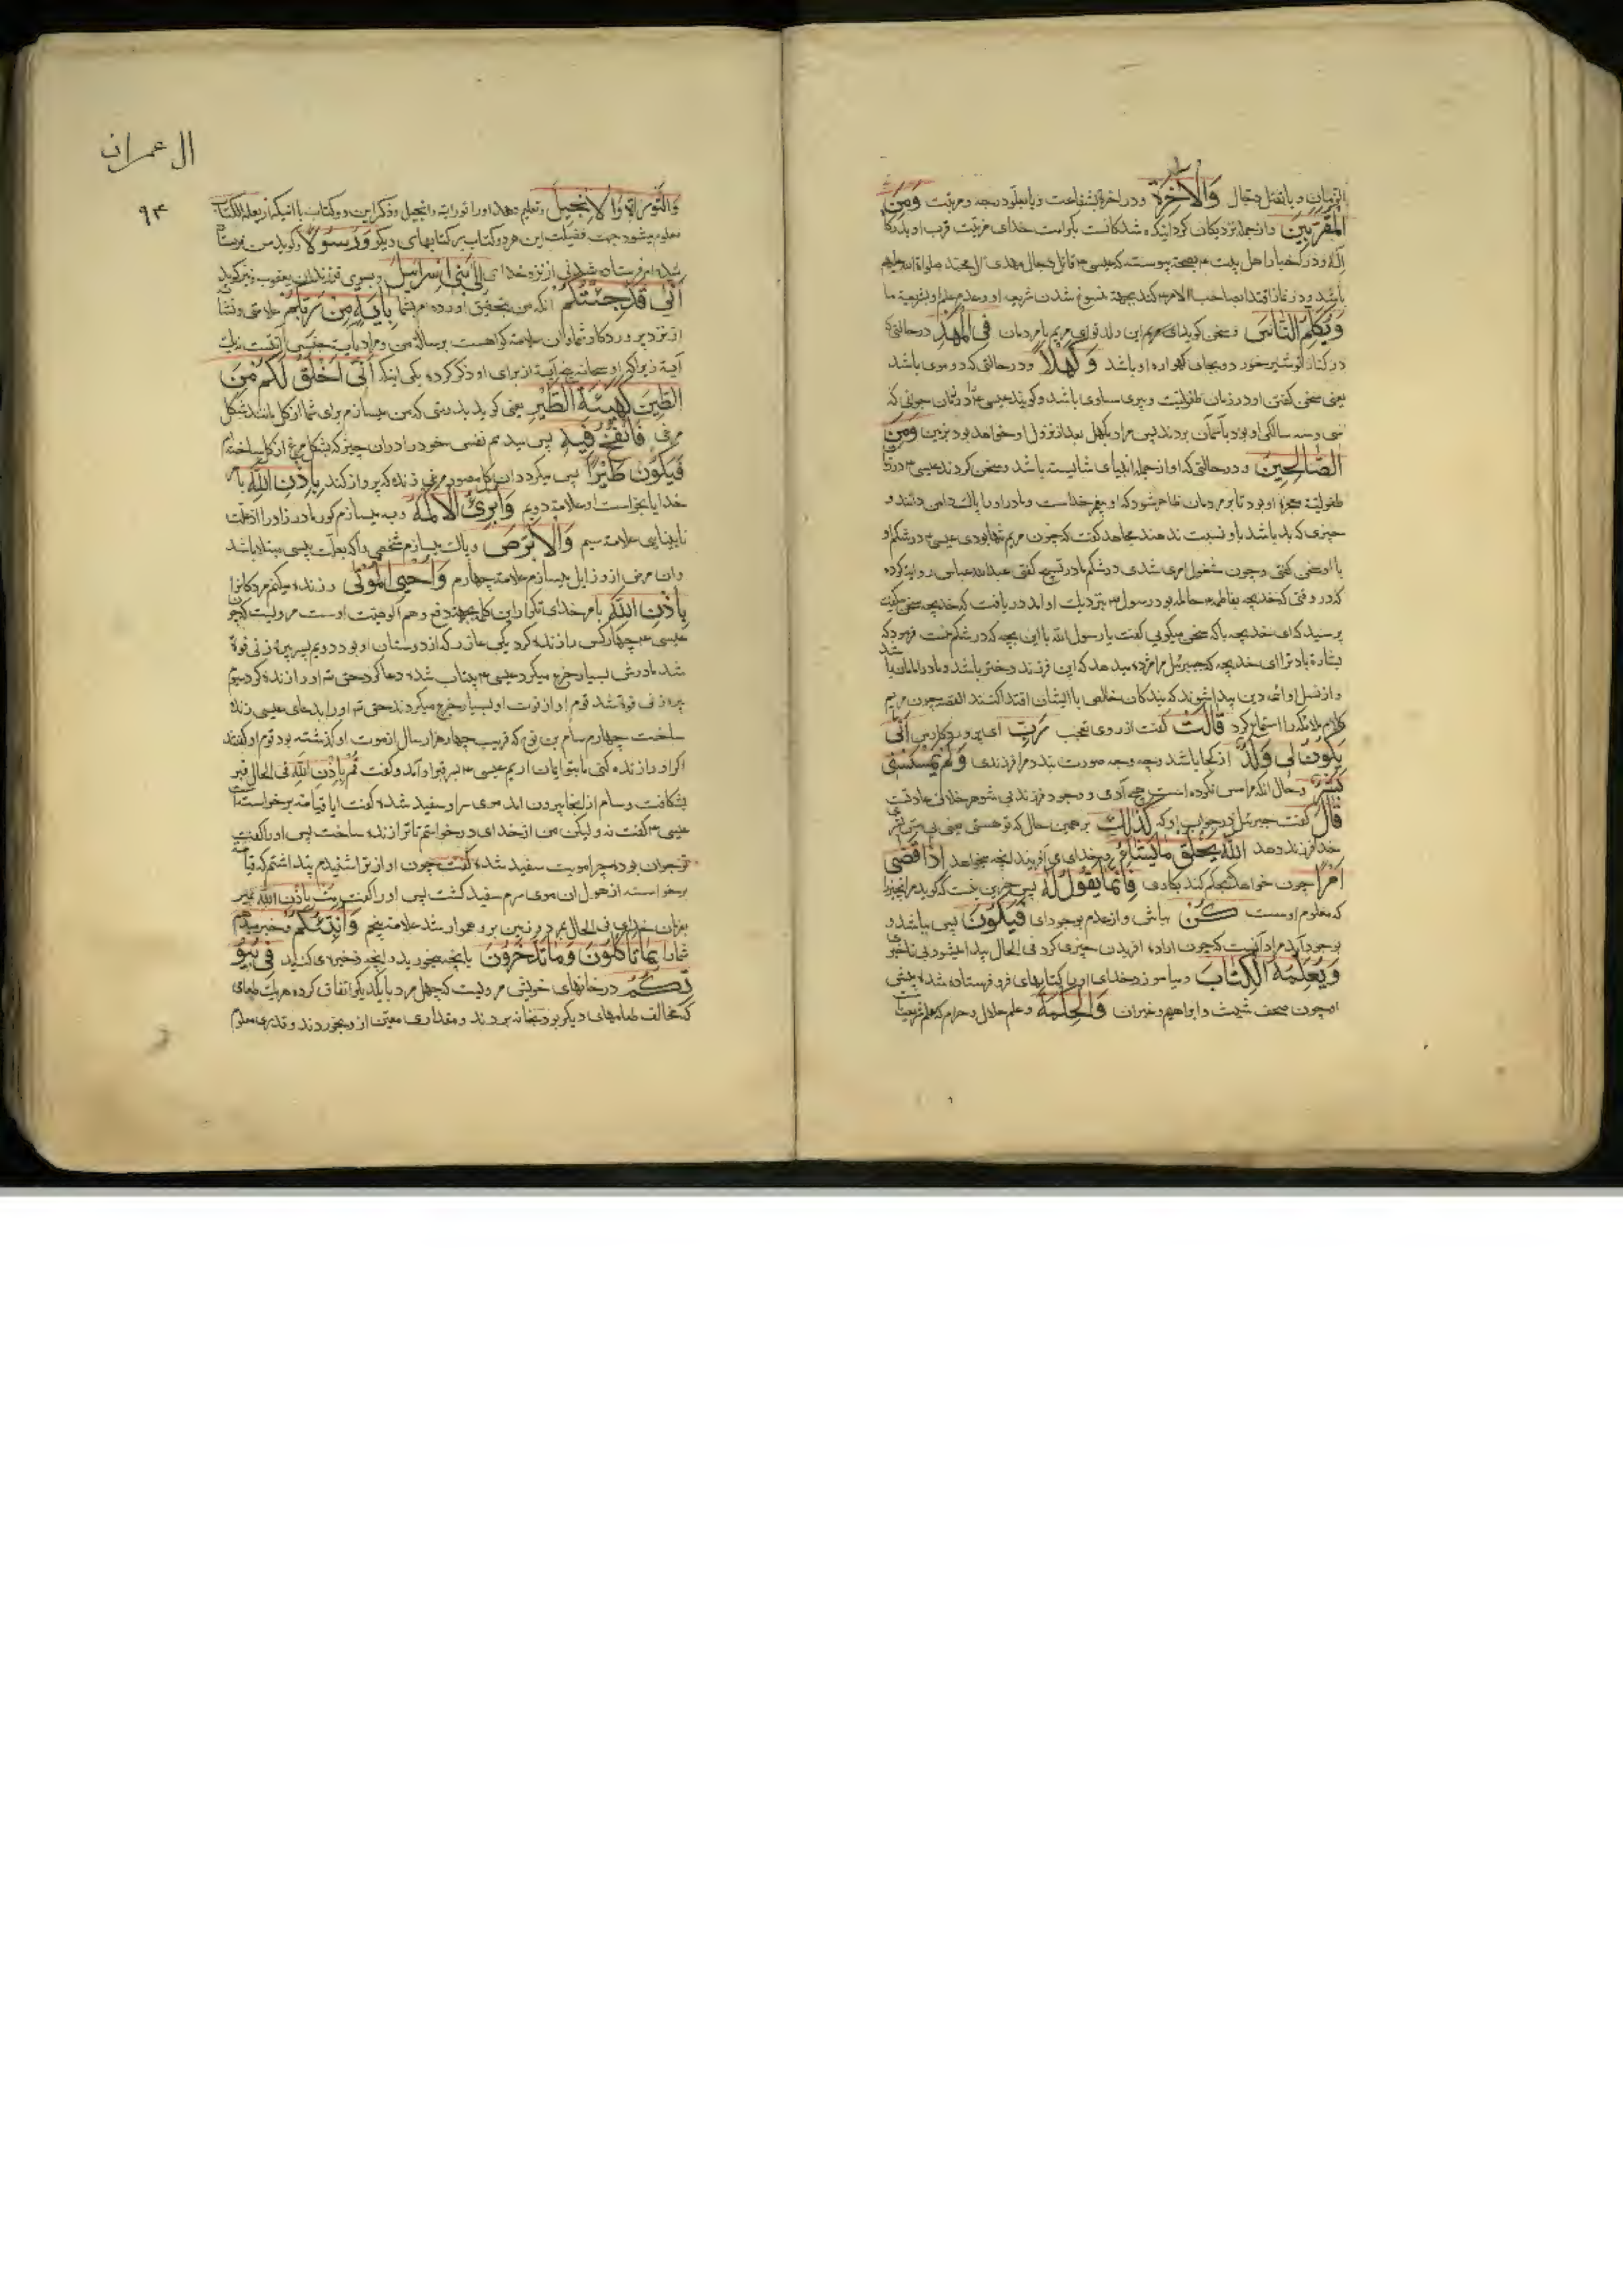 الزمان و یا بقتل دجال وَالْآخِرَةِ و در اخرة بشفاعت و یا بعلو درجه و مرتبت وَمِنَ
الْمُقَرَّبِینَ و از جمله نزدیکان کردانیده شدکانست بکرامت خدای
باشد و در نماز اقتدا بصاحب الامر کند بجهة منسوخ شدن شریعت او
وَیُکَلِّمُ النَّاسَ و سخن کوید ای مریم این ولد تو ای مریم با مردمان فِی الْمَهْدِ در حالتی که
در کنار تو شیر خورد و بجای کهواره او باشد وَکَهْلًا و در حالتی که دو موی باشد
یعنی سخن کفتن او در زمان طفولیت و پیری مساوی باشد و کویند عیسی را در زمان جوانی که
سی و سه سالکی او بود بآسمان بردند پس مراد بکهل بعد از نزول او خواهد بود بزمین وَمِنَ
الصَّالِحِینَ و در حالتی که او از جمله انبیای شایسته باشد و سخن کردن عیسی در
طفولیة معجزهٔ او بود تا بر مردمان ظاهر شود که او پیغمبر خداست و مادر او را پاک دامن دانند و
چیزی که بد باشد باو نسبت ندهند مجاهد کفت که چون مریم تنها بودی عیسی در شکم او
با او سخن کفتی و چون مشغول امری شدی در شکم مادر تسبیح کفتی عبدالله عباس روایت کرده
که در وقتی که خدیجه بفاطمه حامله بود رسول نزدیک او آمد دریافت که خدیجه سخن میکفت
پرسید که ای خدیجه با که سخن میکویی کفت یا رسول الله با این بچه که در شکم منست فرمود که
بشارة باد ترا ای خدیجه که جبرئیل مرا مژده میدهد که این فرزند دختر باشد و مادر امامان باشد
و از نسل او ائمه دین پیدا شوند که بندکان خالص با ایشان اقتدا کنند القصه چون مریم
کلام ملائکه را استماع کرد قَالَتْ کفت از روی تعجب رَبِّ ای پروردکار من أَنَّی
یَکُونُ لِی وَلَدٌ از کجا باشد و چه وجه صورت بندد مرا فرزندی وَلَمْ یَمْسَسْنِی
بَشَرٌ و حال آنکه مرا مس نکرده است هیچ آدمی و وجود فرزند بی شوهر خلاف عادتست
قَالَ کفت جبرئیل در جواب او که کَذَلِکِ بر همین حال که تو هستی یعنی بی مس بشر
خدا فرزند دهد اللَّهُ یَخْلُقُ مَا یَشَاءُ و خدای می آفریند آنچه میخواهد إِذَا قَضَی
أَمْرًا چون خواهد که حکم کند بکاری فَإِنَّمَا یَقُولُ لَهُ پس جز این نیست که کوید مر آنچیز را
که معلوم اوست کُنْ بباش و از عدم بوجود آی فَیَکُونُ پس بباشد و
بوجود آید مراد آنست که چون اراده آفریدن چیزی کرد فی الحال پیدا میشود بی تاخیر
وَیُعَلِّمُهُ الْکِتَابَ و بیاموزد خدای او را کتابهای فرو فرستاده شده یعنی
همچون صحف شیث و ابراهیم و غیر آن وَالْحِکْمَةَ و علم حلال و حرام که علم شریعتست
ال عمران
۹۴
وَالتَّوْرَاةَ وَالْإِنْجِیلَ و تعلیم دهد او را توراية و انجیل و ذکر این دو کتاب با آنکه از یعلمه الکتاب
معلوم میشود جهت فضیلت این هر دو کتاب بر کتابهای دیگر وَرَسُولًا و کوید من
شده ام فرستاده شدنی از نزد خدای إِلَی بَنِی إِسْرَائِیلَ و بسوی فرزندان یعقوب
أَنِّی قَدْ جِئْتُکُمْ آنکه من بتحقیق آورده ام بشما بِآیَةٍ مِنْ رَبِّکُمْ علامتی و نشانی
از نزد پروردکار شما و آن علامت کواهست بر رسالة من و مراد بآیت جنس آیتست نه یک
آیة زیرا که او سبحانه پنج آیة از برای او ذکر کرده یکی اینکه أَنِّی أَخْلُقُ لَکُمْ مِنَ
الطِّینِ کَهَیْئَةِ الطَّیْرِ یعنی کوید بدرستی که من میسازم برای شما از کل مانند شکل
مرغی فَأَنْفُخُ فِیهِ پس میدمم نفس خود را در آن چیز که بشکل مرغ از کل ساخته ام
فَیَکُونُ طَیْرًا پس میکردد آن کل مصور مرغی زنده که پرواز کند بِإِذْنِ اللَّهِ بامر
خدا یا بخواست او علامت دویم وَأُبْرِئُ الْأَکْمَهَ و به میسازم کور مادرزاد را از علت
نابینایی علامت سیم وَالْأَبْرَصَ و پاک میسازم شخصی را که بعلت پیسی مبتلا باشد
و آن مرض از او زایل میسازم علامت چهارم وَأُحْیِی الْمَوْتَی و زنده میکنم مردکانرا
بِإِذْنِ اللَّهِ بامر خدای تکرار این کلمه بجهة دفع وهم الوهیت اوست مرویست که چون
عیسی چهار کس را زنده کرد یکی عازر که از دوستان او بود دویم پسر پیره زنی فوة
شد مادرش بسیار جزع میکرد عیسی بیتاب شده دعا کرد حق او را زنده کرد سیم
ساخت چهارم سام بن نوح که قریب چهار هزار سال از موت او کذشته بود قوم او کفتند
اکر او را زنده کنی ما بتو ایمان آریم عیسی بسر قبر او آمد و کفت قُمْ بِإِذْنِ اللَّهِ فی الحال قبر
بشکافت و سام از آنجا بیرون آمد موی سر او سفید شده کفت آیا قیامت برخواسته است
عیسی کفت نه ولیکن من از خدای درخواستم تا ترا زنده ساخت پس او را کفت
تو جوان بوده چرا مویت سفید شده کفت چون آواز ترا شنیدم پنداشتم که قیامت
برخواسته از هول آن موی سرم سفید کشت پس او را کفت مت باذن الله بمیر
بفرمان خدای فی الحال بمرد و زمین برو هموار شد علامت پنجم وَأُنَبِّئُکُمْ و خبر میدهم
شما را بِمَا تَأْکُلُونَ وَمَا تَدَّخِرُونَ بآنچه میخورید و آنچه ذخیره می کنید فِی بُیُو
تِکُمْ در خانهای خویش مرویست که چهل مرد با یکدیکر اتفاق کرده هر یک طعامی
که مخالف طعامهای دیکر بود بخانه بردند و مقداری معین از او بخوردند و قدری معلوم